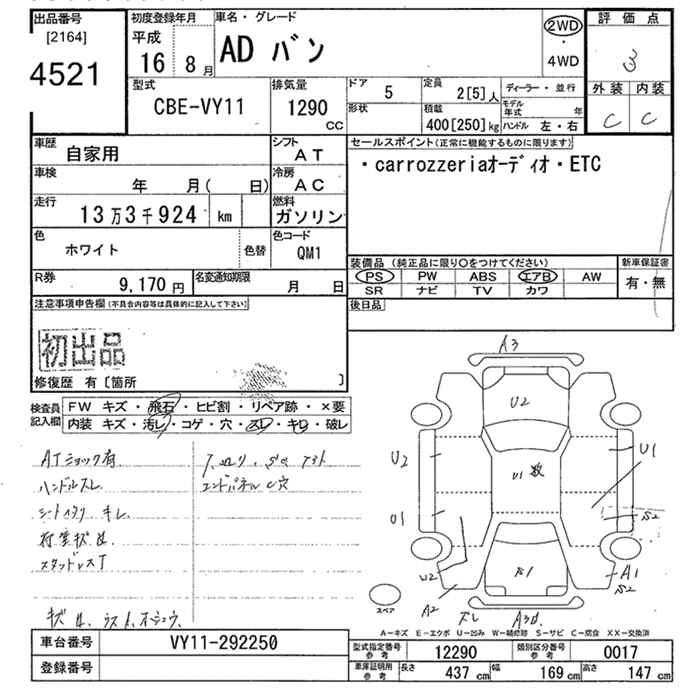 出品番号 初度登録年月 車名・グレード 2WD 評価点
[2164] 平成 AD バン ・ 3
4521 16 8月 4WD 外装 内装
型式 排気量 ドア 5 定員 2[5]人 ディーラー・並行 C C
CBE-VY11 1290 CC 形状 積載 400[250]kg モデル年式 年 ハンドル 左・右
車歴 自家用 シフト AT セールスポイント(正常に機能するものに限ります)
車検 年 月( 日) 冷房 AC ・carrozzeriaオーディオ・ETC
走行 13万3千924 km 燃料 ガソリン
色 ホワイト 色替 色コード QM1
装備品 (純正品に限り○をつけてください) 新車保証書
R券 9,170円 名変通知期限 月 日 PS PW ABS エアB AW 有・無
SR ナビ TV カワ
注意事項申告欄(不具合内容等は具体的に記入して下さい) 後日品
初出品
修復歴 有〔箇所 〕
検査員記入欄 FW キズ・飛石・ヒビ割・リペア跡・×要
内装 キズ・汚レ・コゲ・穴・スレ・キレ・破レ
ATショック有
ハンドルスレ エンドパネルC穴
シート キレ
A3
U2
U2 U1 数 U1
U1 S2
U2 S1 A1
A2 S2
スペア
A−キズ E−エクボ U−凹み W−補修跡 S−サビ C−腐食 XX−交換済
車台番号 VY11-292250 型式指定番号 参考 12290 類別区分番号 参考 0017
登録番号 車庫証明用 参考 長さ 437 cm 幅 169 cm 高さ 147 cm